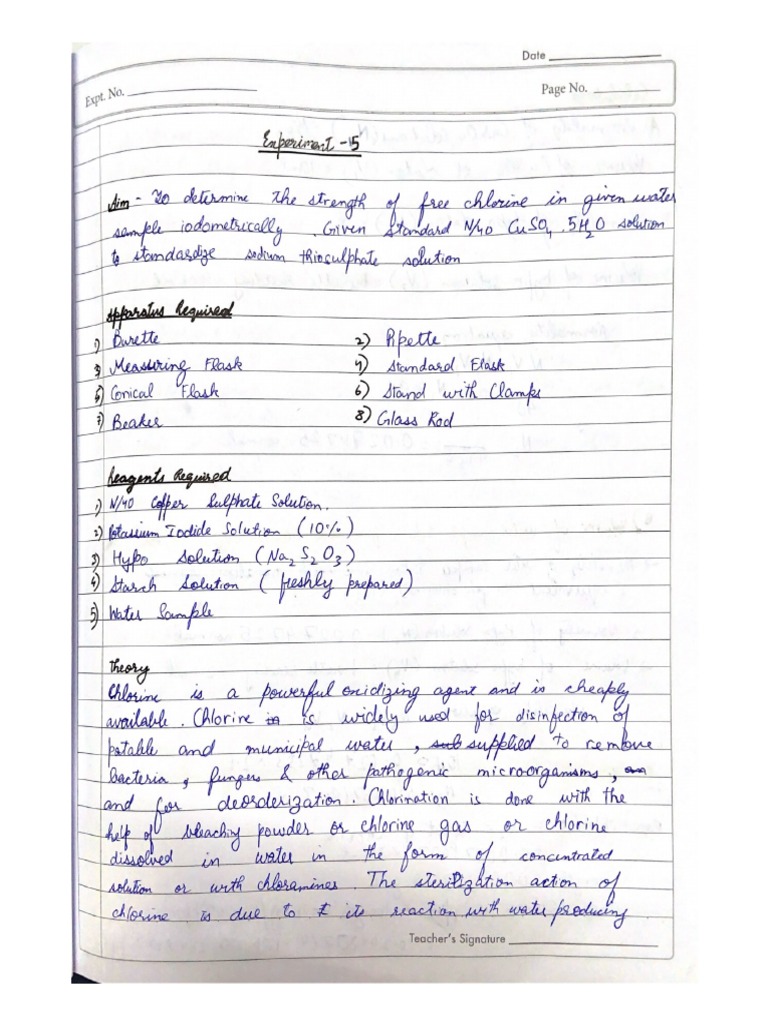 Date
Expt. No.
Page No.
Experiment -15
Aim - To determine the strength of free chlorine in given water
sample iodometrically. Given standard N/40 CuSO4 . 5H2O solution
to standardize sodium thiosulphate solution
Apparatus Required
1) Burette
2) Pipette
3) Measuring Flask
4) Standard Flask
5) Conical Flask
6) Stand with Clamps
7) Beaker
8) Glass Rod
Reagents Required
1) N/40 Copper Sulphate Solution.
2) Potassium Iodide Solution (10%)
3) Hypo solution (Na2S2O3)
4) Starch Solution (freshly prepared)
5) Water Sample
Theory
Chlorine is a powerful oxidizing agent and is cheaply
available. Chlorine is widely used for disinfection of
potable and municipal water, supplied to remove
bacteria, fungers & other pathogenic microorganisms,
and for deorderization. Chlorination is done with the
help of bleaching powder or chlorine gas or chlorine
dissolved in water in the form of concentrated
solution or with chloramines. The sterilization action of
chlorine is due to its reaction with water producing
Teacher's Signature